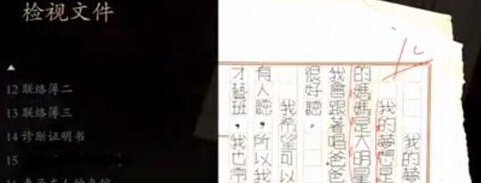 检视文件
12 联络簿二
13 联络簿三
14 诊断证明书
15
我的
我的夢想是
的媽媽是大明星
我會跟著唱爸爸
很好聽。
我希望可以
有人聽,所以我
才藝班,我也常